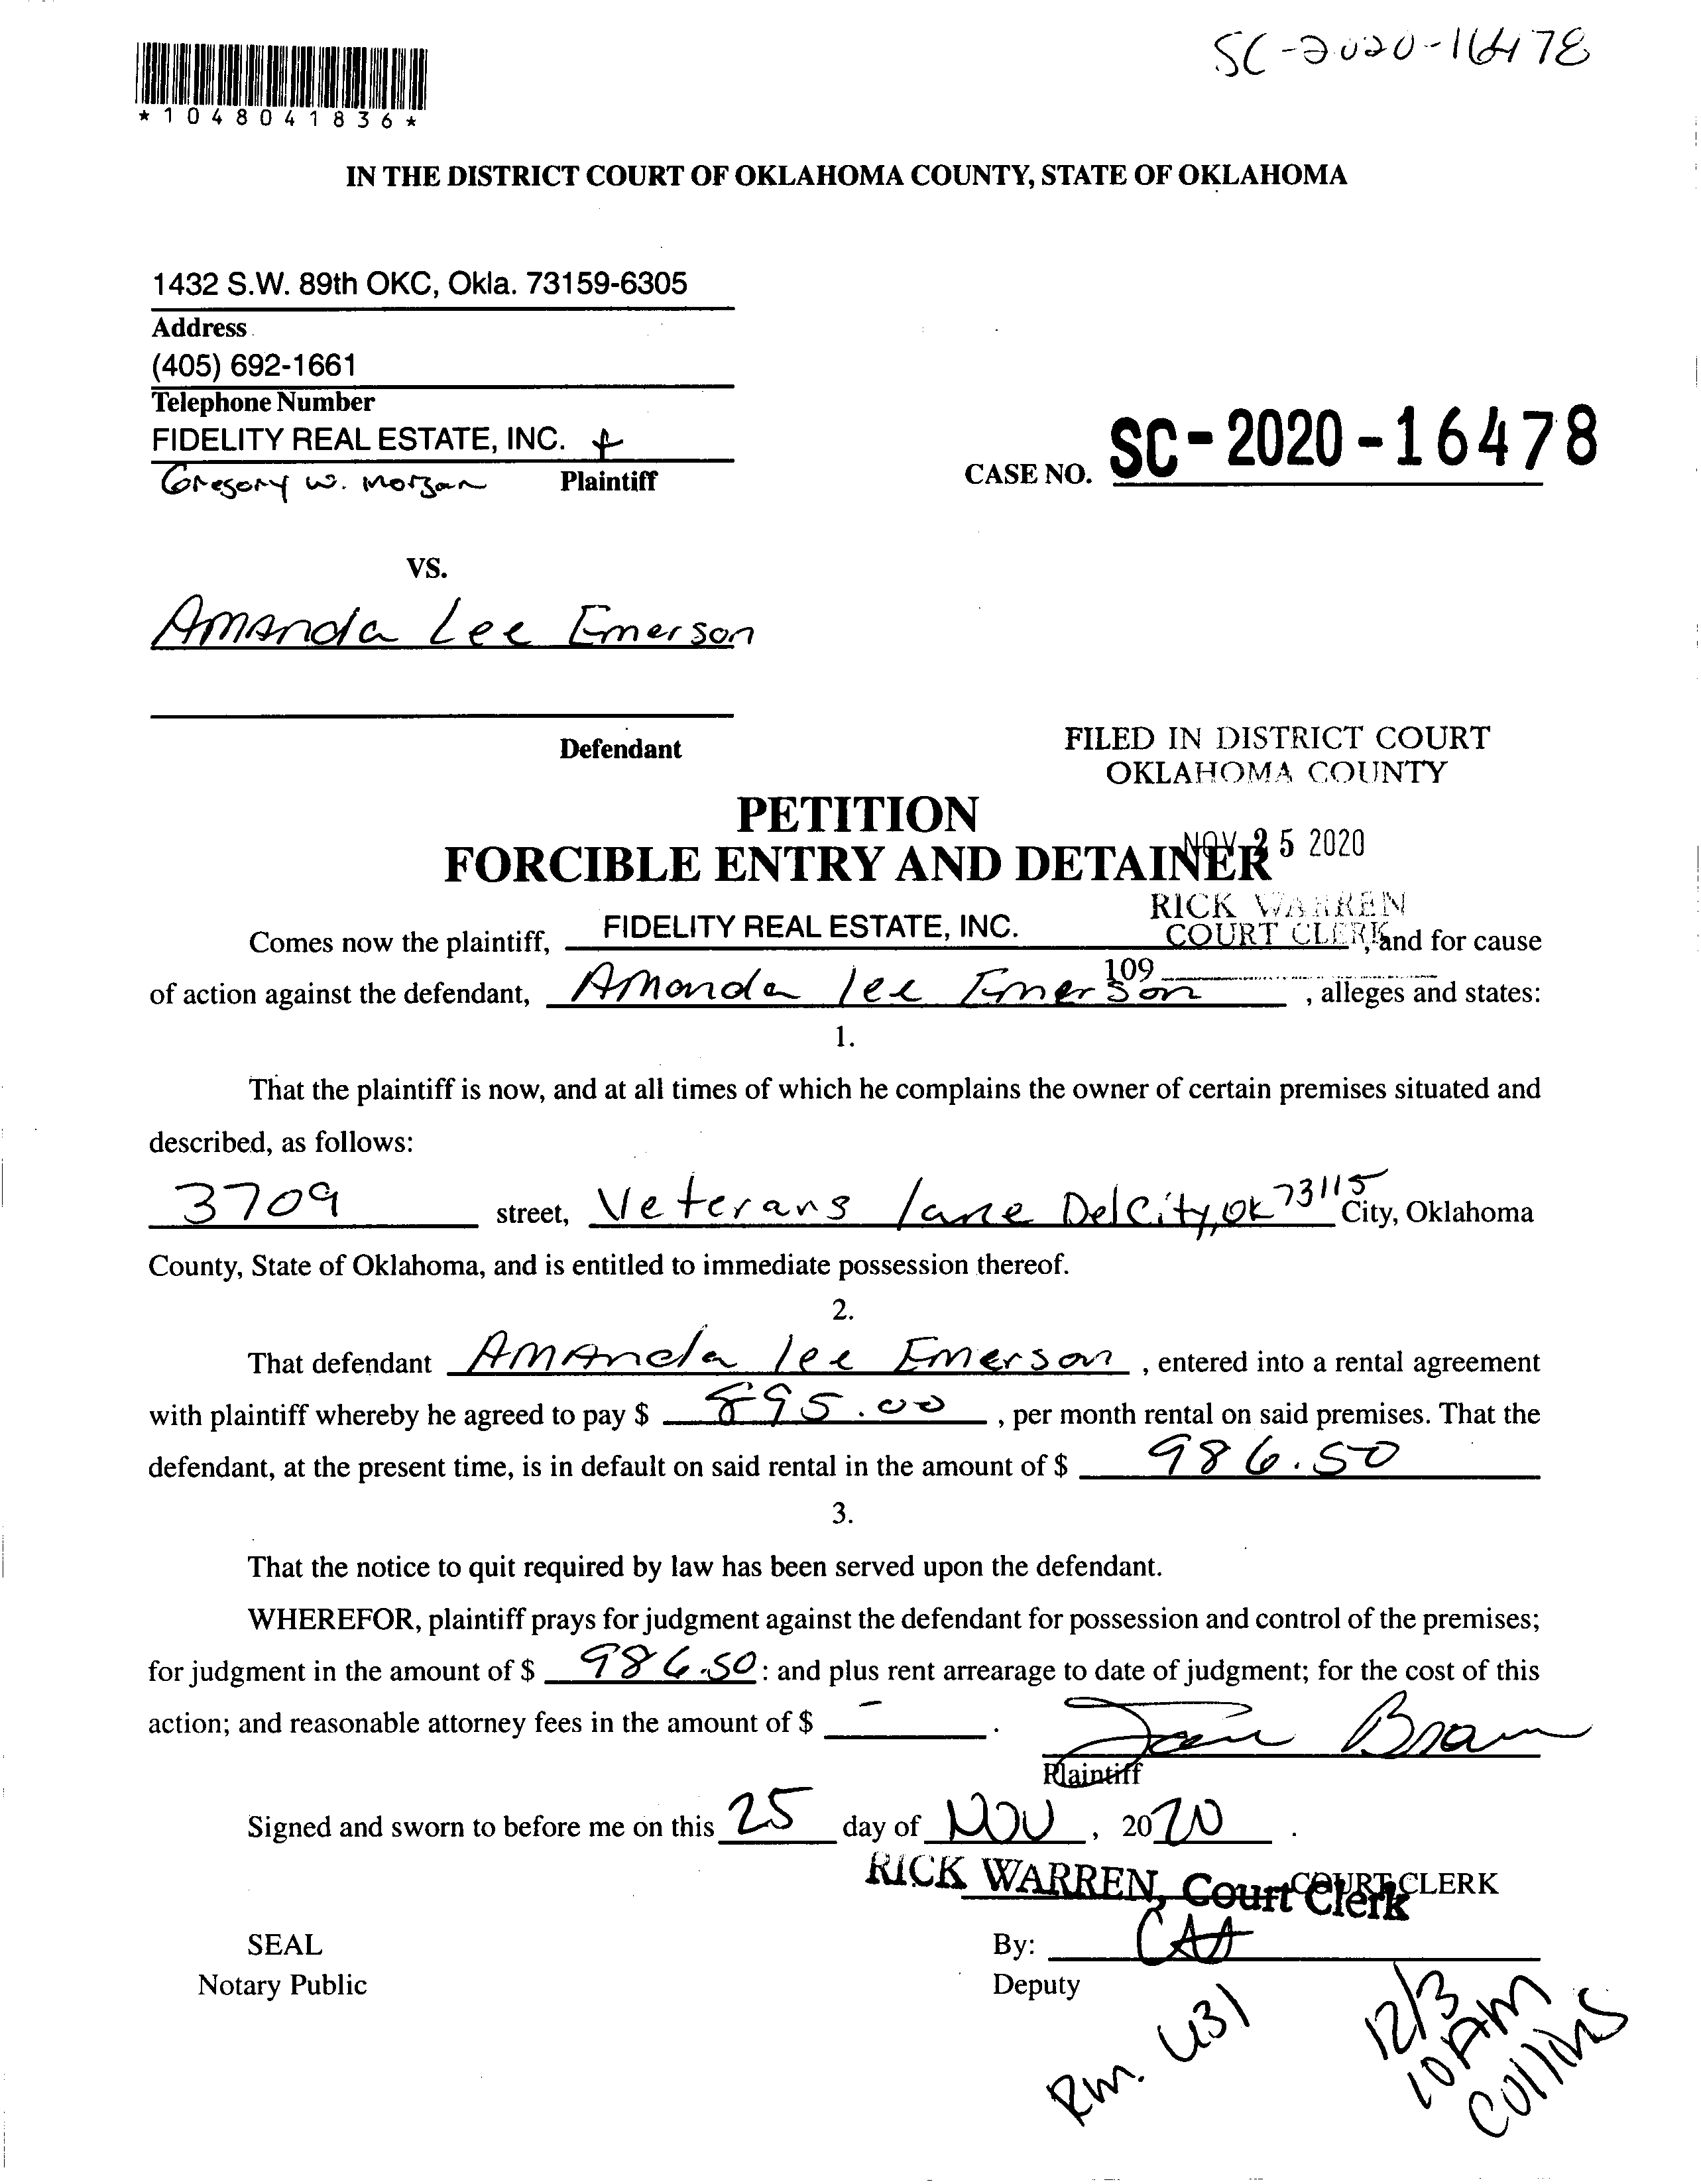 SC-2020-16478
*1048041836*
IN THE DISTRICT COURT OF OKLAHOMA COUNTY, STATE OF OKLAHOMA
1432 S.W. 89th OKC, Okla. 73159-6305
Address
(405) 692-1661
Telephone Number
FIDELITY REAL ESTATE, INC. +
Gregory W. Morgan Plaintiff
CASE NO. SC-2020-16478
VS.
Amanda Lee Emerson
Defendant
FILED IN DISTRICT COURT
OKLAHOMA COUNTY
PETITION
FORCIBLE ENTRY AND DETAINER
NOV 25 2020
RICK WARREN
COURT CLERK
109
Comes now the plaintiff, FIDELITY REAL ESTATE, INC. , and for cause
of action against the defendant, Amanda lee Emerson , alleges and states:
1.
That the plaintiff is now, and at all times of which he complains the owner of certain premises situated and
described, as follows:
3709 street, Veterans lane DelCity, OK 73115 City, Oklahoma
County, State of Oklahoma, and is entitled to immediate possession thereof.
2.
That defendant Amanda lee Emerson , entered into a rental agreement
with plaintiff whereby he agreed to pay $ 895.00 , per month rental on said premises. That the
defendant, at the present time, is in default on said rental in the amount of $ 986.50
3.
That the notice to quit required by law has been served upon the defendant.
WHEREFOR, plaintiff prays for judgment against the defendant for possession and control of the premises;
for judgment in the amount of $ 986.50 : and plus rent arrearage to date of judgment; for the cost of this
action; and reasonable attorney fees in the amount of $ - .
Plaintiff
Signed and sworn to before me on this 25 day of NOV , 2020 .
RICK WARREN, Court Clerk COURT CLERK
SEAL
Notary Public
By: CAA
Deputy
Rm. 431
12/3
10 AM
Collins